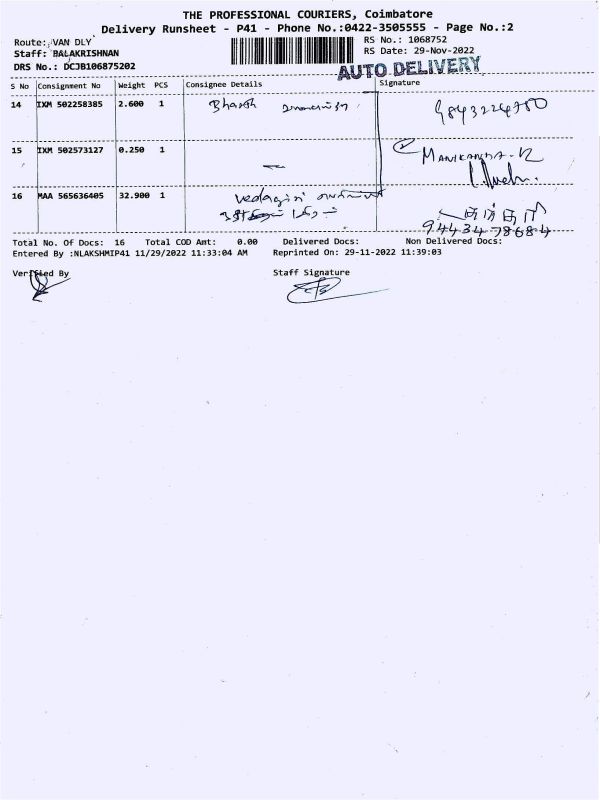 THE PROFESSIONAL COURIERS, Coimbatore
Delivery Runsheet - P41 - Phone No.:0422-3505555 - Page No.:2
Route: VAN DLY
RS No.: 1068752
Staff: BALAKRISHNAN
RS Date: 29-Nov-2022
DRS No.: DCJB106875202
AUTO DELIVERY
S No Consignment No Weight PCS Consignee Details Signature
14 IXM 502258385 2.600 1 Bharath 9843224780
15 IXM 502573127 0.250 1 MANIKANDA-K
16 MAA 565636405 32.900 1 vedagiri
9443478684
Total No. Of Docs: 16 Total COD Amt: 0.00 Delivered Docs: Non Delivered Docs:
Entered By :NLAKSHMIP41 11/29/2022 11:33:04 AM Reprinted On: 29-11-2022 11:39:03
Verified By Staff Signature